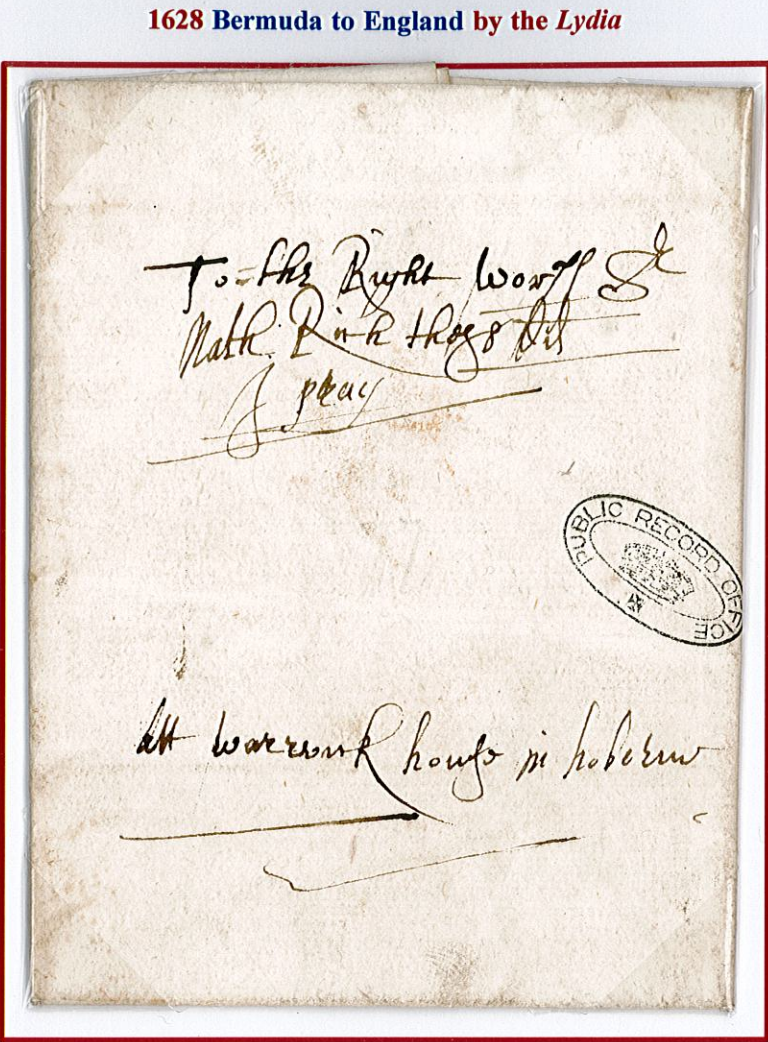 1628 Bermuda to England by the Lydia
To the Right Worll Sr
Nath. Rich thes dd
I pray
PUBLIC RECORD OFFICE
att warrwick house in holborne